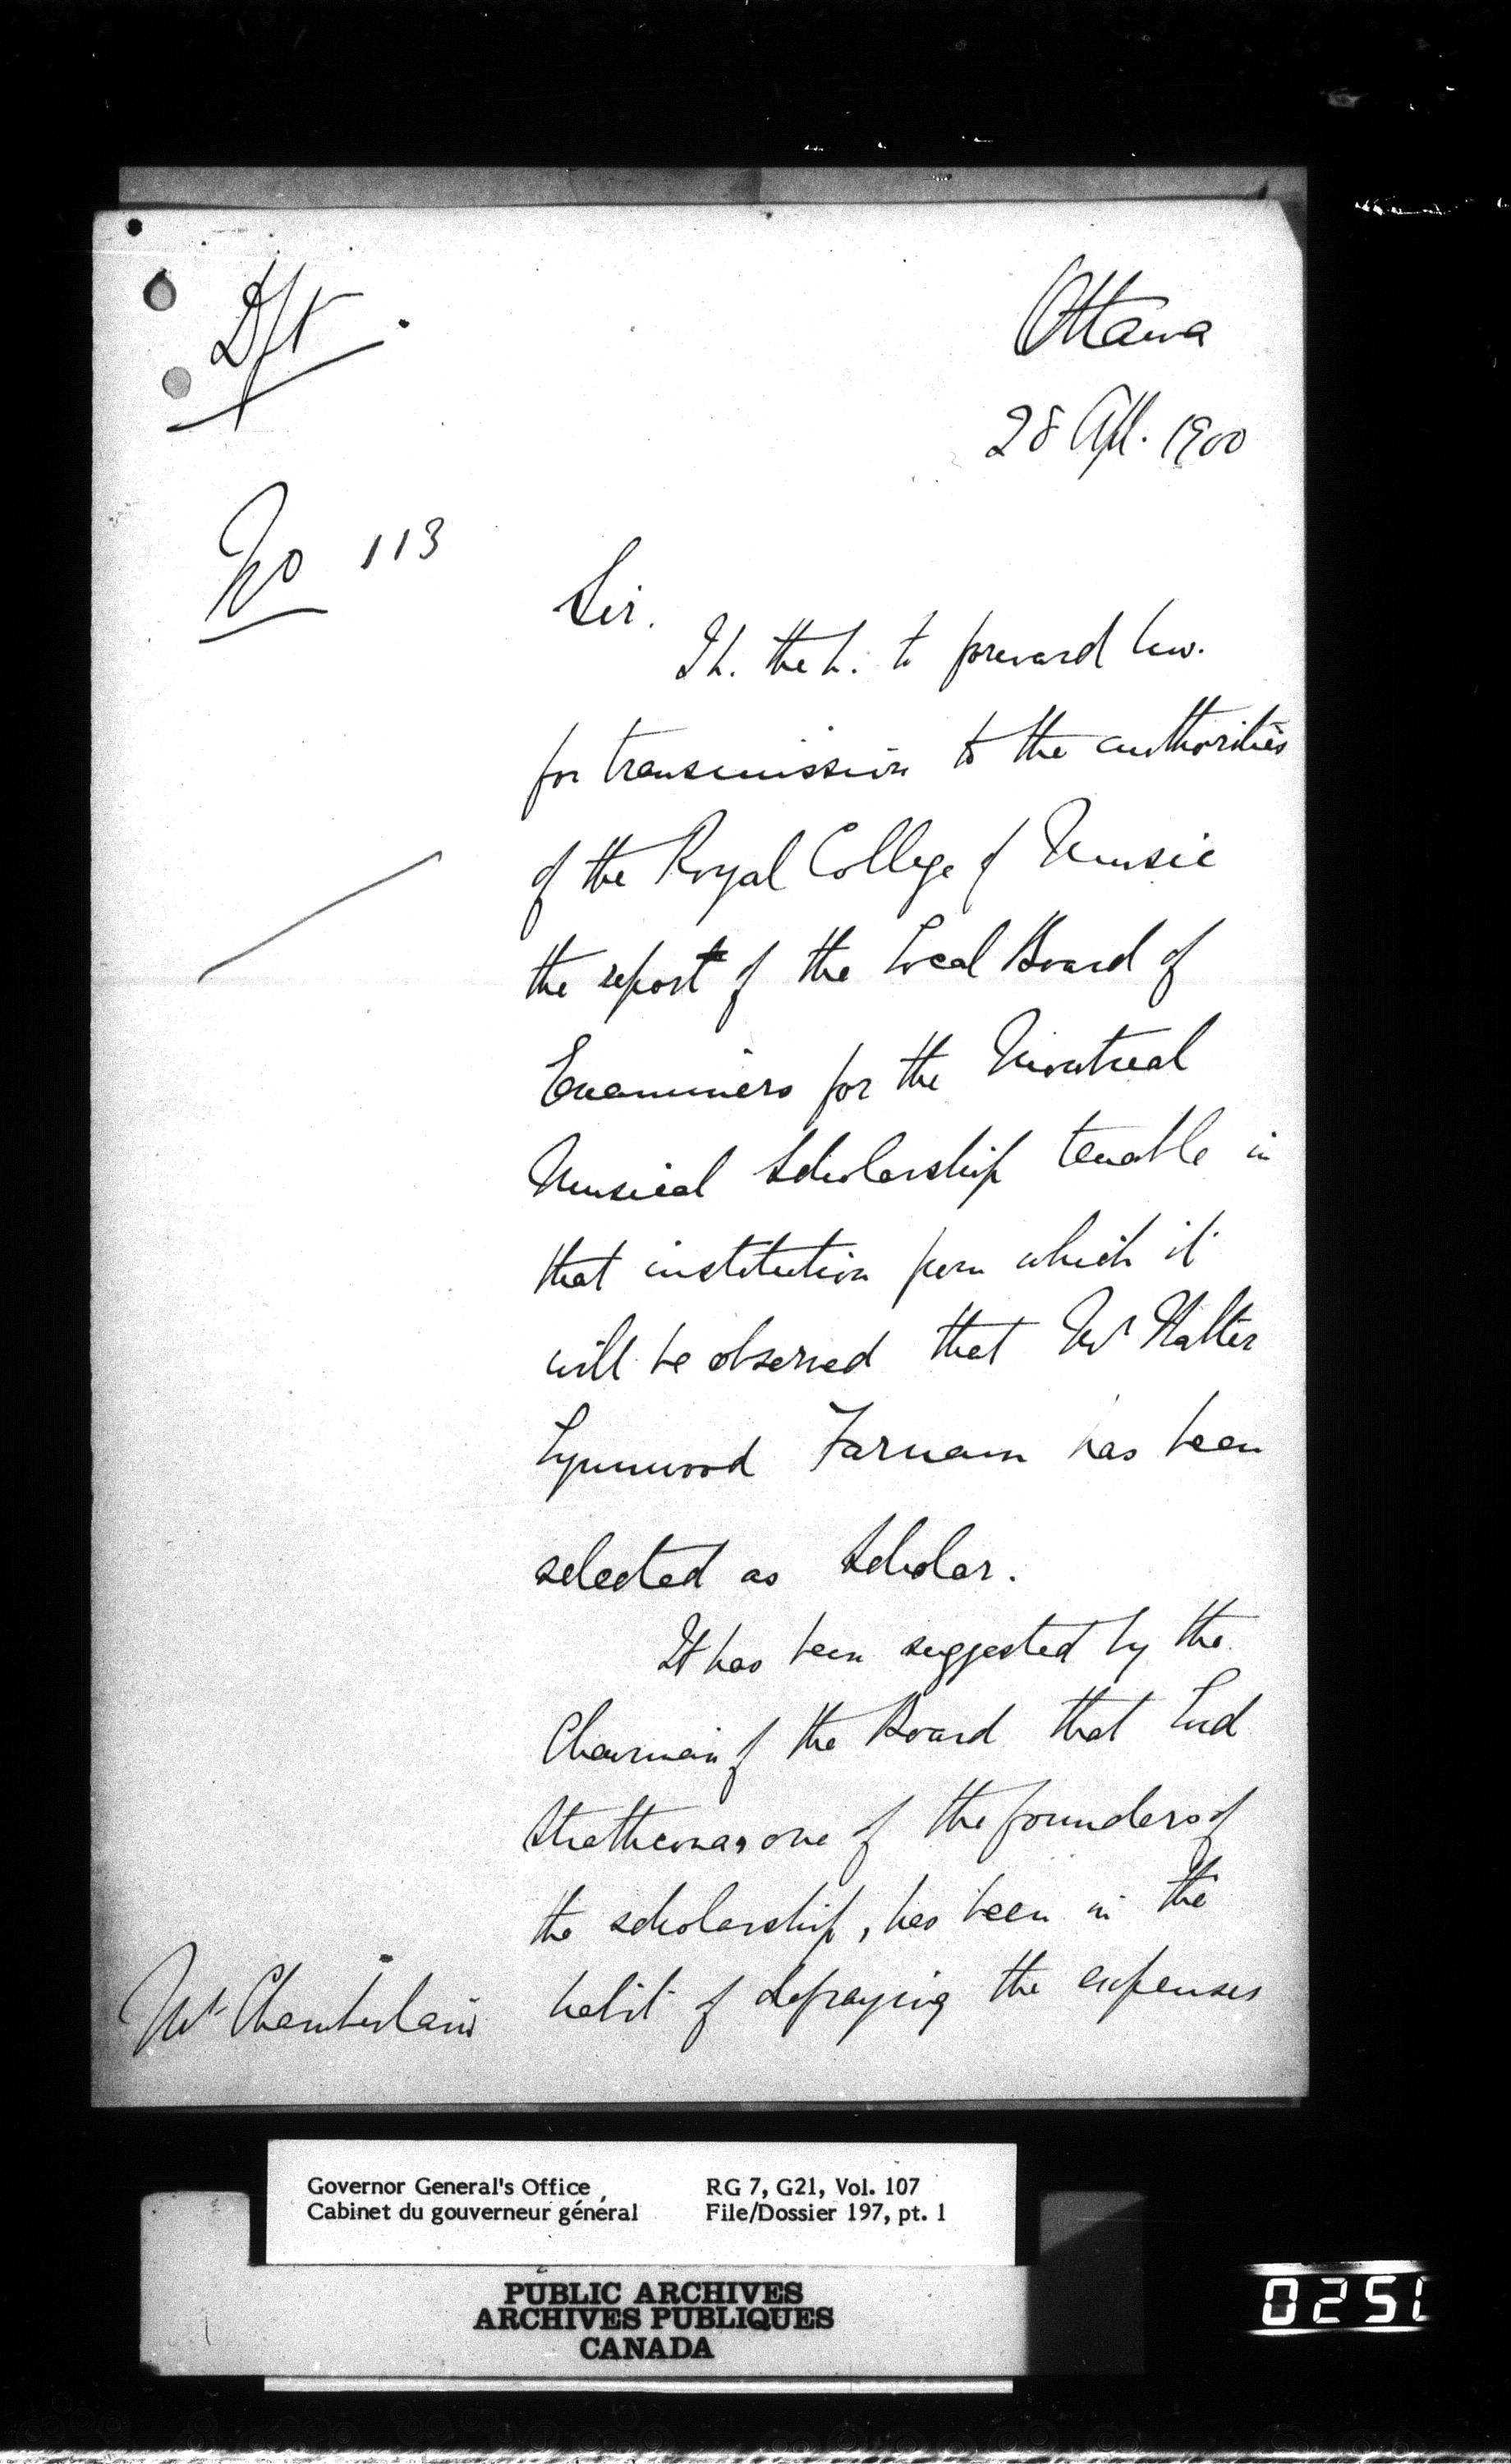 Dft.
Ottawa
28 Apl. 1900
No 113
Sir.
I h. the h. to forward hew.
for transmission to the authorities
of the Royal College of Music
the report of the Local Board of
Examiners for the Montreal
Musical Scholarship tenable in
that institution from which it
will be observed that Mr Walter
Lynnwood Farnam has been
selected as Scholar.
It has been suggested by the
Chairman of the Board that Lord
Strathcona, one of the founders of
the scholarship, has been in the
habit of defraying the expenses
Mr Chamberlain
Governor General's Office
Cabinet du gouverneur général
RG 7, G21, Vol. 107
File/Dossier 197, pt. 1
PUBLIC ARCHIVES
ARCHIVES PUBLIQUES
CANADA
0251